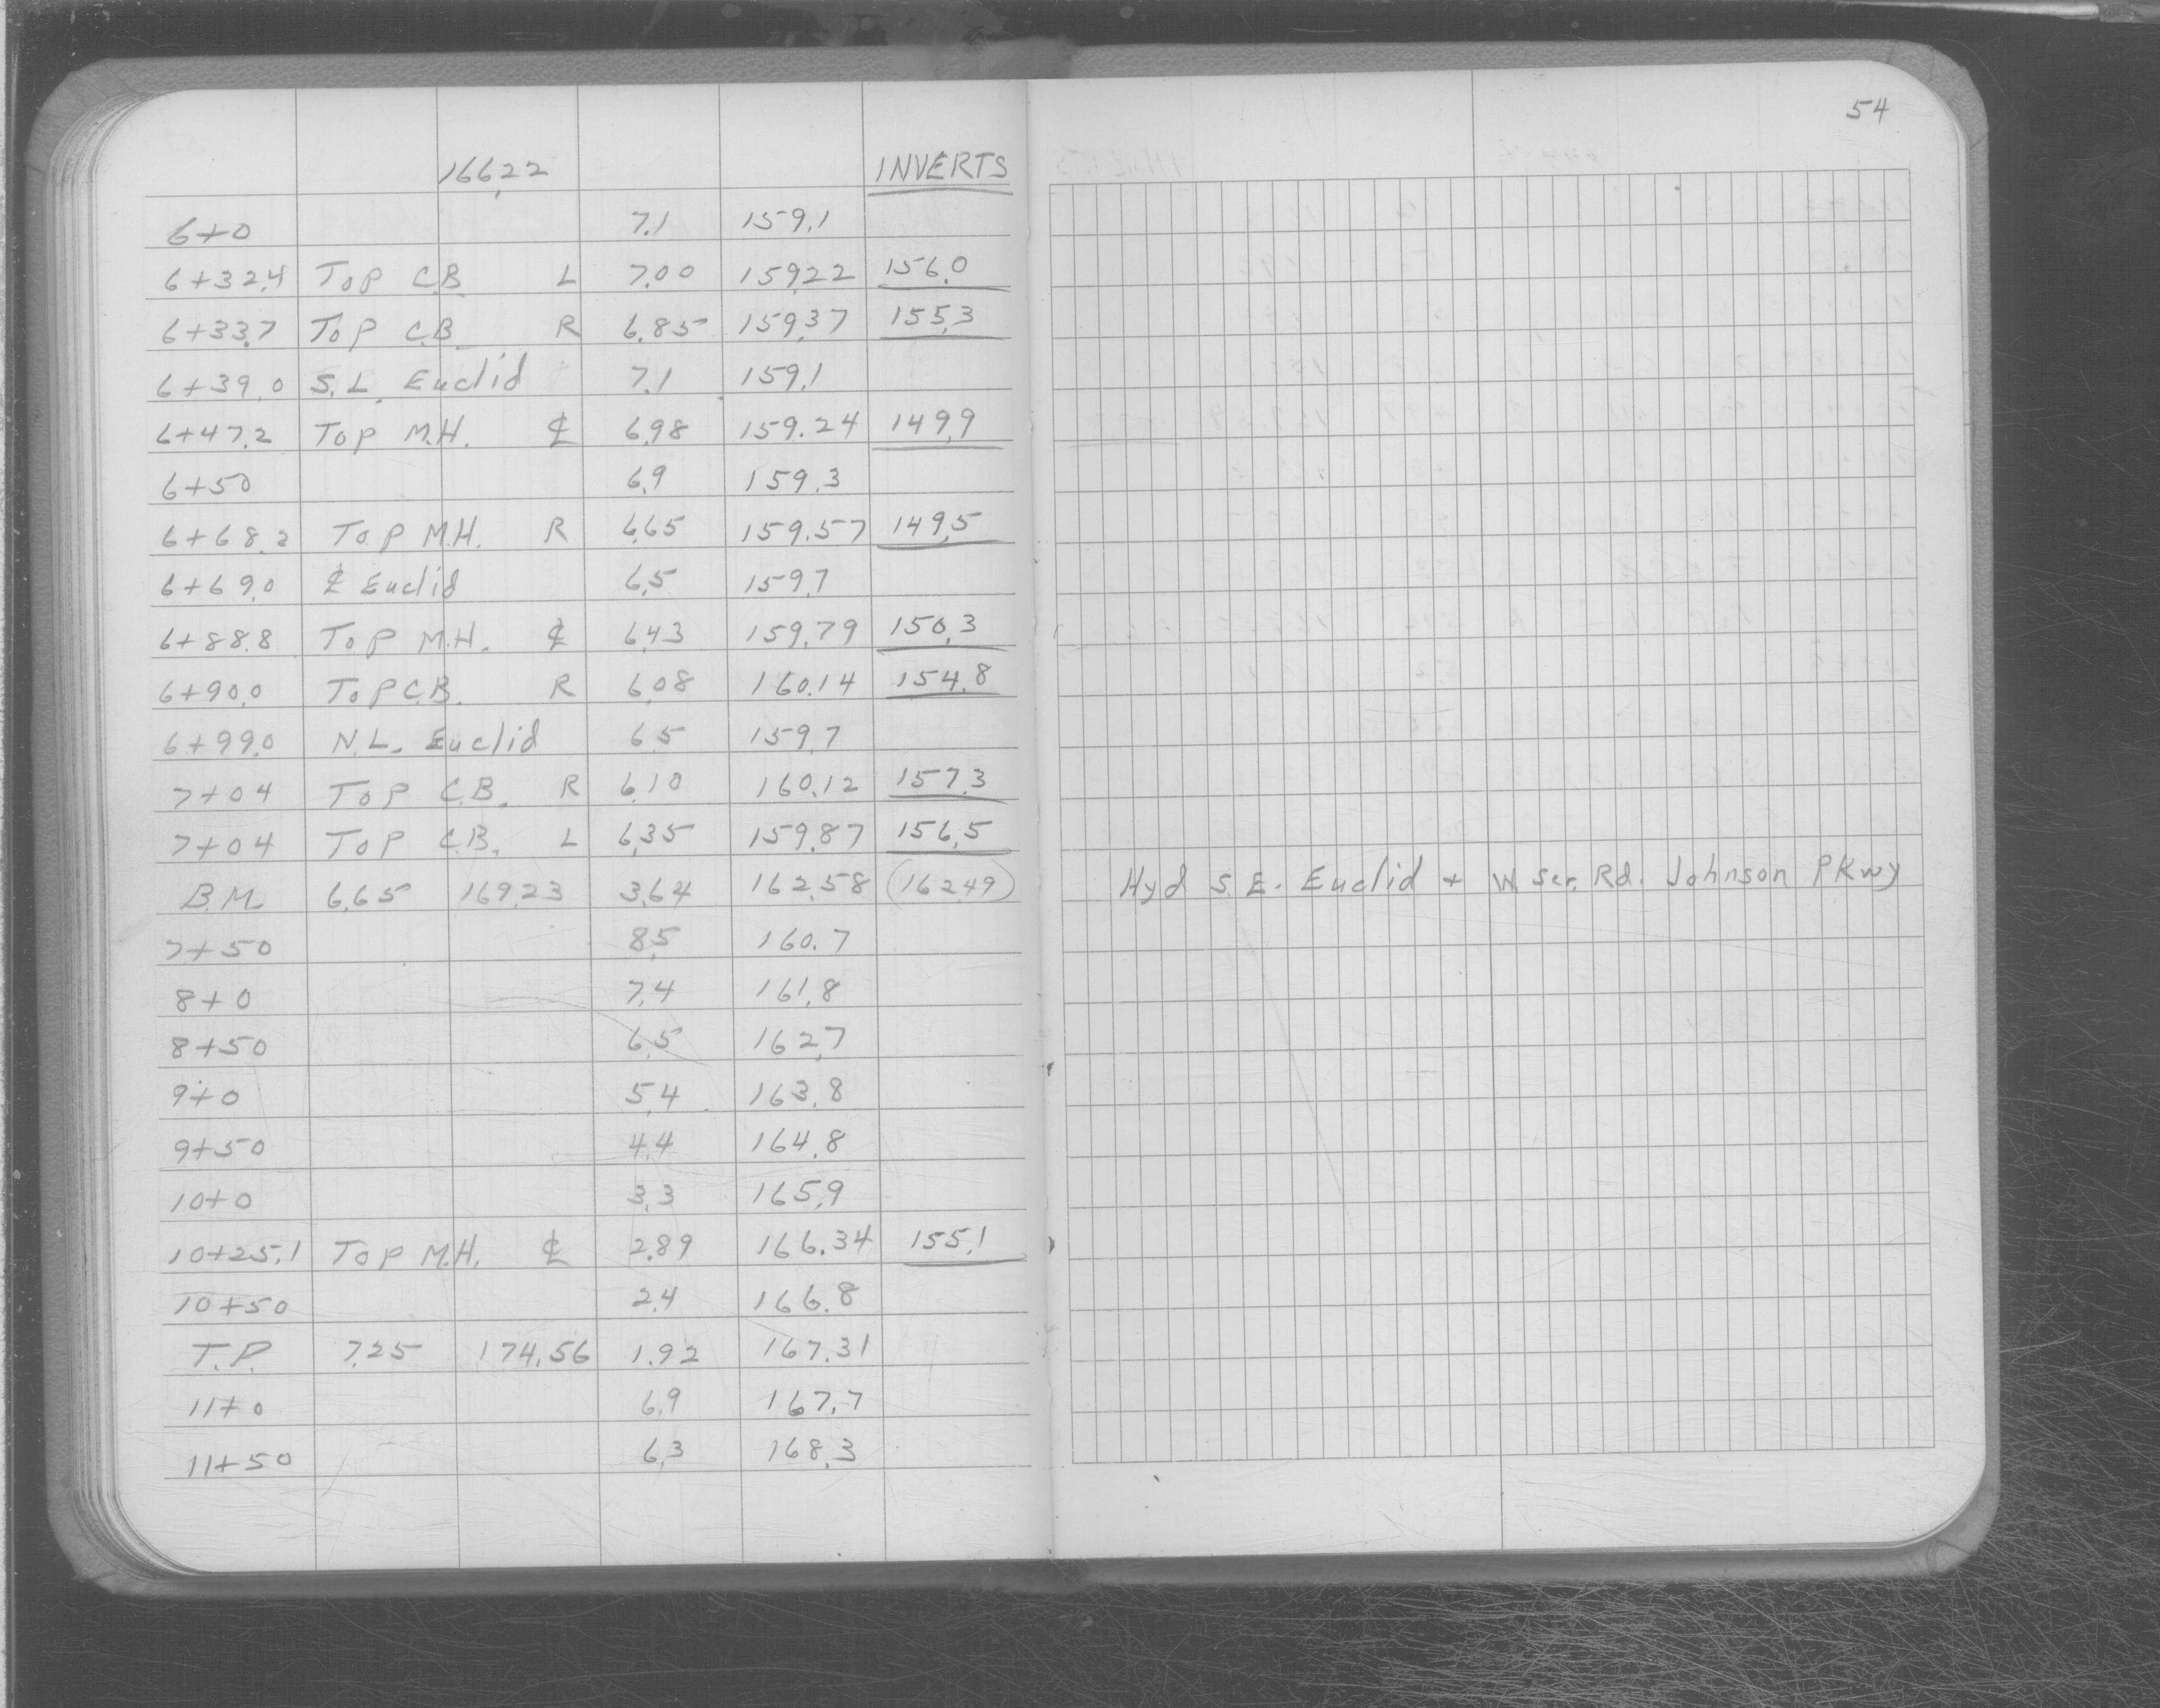 54
166.22 INVERTS
6+0 7.1 159.1
6+32.4 Top C.B. L 7.00 159.22 156.0
6+33.7 Top C.B. R 6.85 159.37 155.3
6+39.0 S.L. Euclid 7.1 159.1
6+47.2 Top M.H. ℄ 6.98 159.24 149.9
6+50 6.9 159.3
6+68.2 Top M.H. R 6.65 159.57 149.5
6+69.0 ℄ Euclid 6.5 159.7
6+88.8 Top M.H. ℄ 6.43 159.79 150.3
6+90.0 Top C.B. R 6.08 160.14 154.8
6+99.0 N.L. Euclid 6.5 159.7
7+04 Top C.B. R 6.10 160.12 157.3
7+04 Top C.B. L 6.35 159.87 156.5
B.M. 6.65 169.23 3.64 162.58 (162.49) Hyd S.E. Euclid + W. Ser. Rd. Johnson Pkwy
7+50 8.5 160.7
8+0 7.4 161.8
8+50 6.5 162.7
9+0 5.4 163.8
9+50 4.4 164.8
10+0 3.3 165.9
10+25.1 Top M.H. ℄ 2.89 166.34 155.1
10+50 2.4 166.8
T.P. 7.25 174.56 1.92 167.31
11+0 6.9 167.7
11+50 6.3 168.3